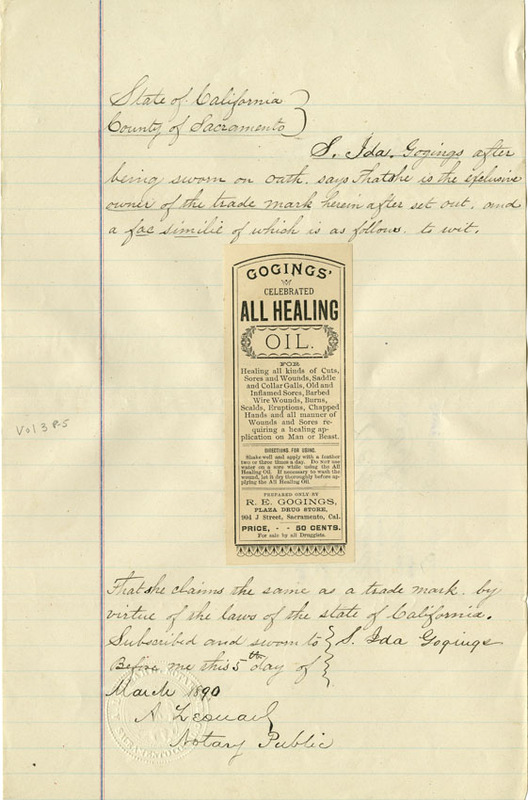 State of California
County of Sacramento
S. Ida. Gogings after
being sworn on oath. says that she is the exclusive
owner of the trade mark herein after set out. and
a fac similie of which is as follows. to wit.
GOGINGS'
CELEBRATED
ALL HEALING
OIL.
FOR
Healing all kinds of Cuts,
Sores and Wounds, Saddle
and Collar Galls, Old and
Inflamed Sores, Barbed
Wire Wounds, Burns,
Scalds, Eruptions, Chapped
Hands and all manner of
Wounds and Sores re-
quiring a healing ap-
plication on Man or Beast.
DIRECTIONS FOR USING.
Shake well and apply with a feather
two or three times a day. Do NOT use
water on a sore while using the All
Healing Oil. If necessary to wash the
wound, let it dry thoroughly before ap-
plying the All Healing Oil.
PREPARED ONLY BY
R. E. GOGINGS,
PLAZA DRUG STORE,
904 J Street, Sacramento, Cal.
PRICE, - - 50 CENTS.
For sale by all Druggists.
Vol 3 P5
That she claims the same as a trade mark. by
virtue of the laws of the state of California.
Subscribed and sworn to S. Ida Gogings
Before me this 5th day of
March 1890
A
Notary Public